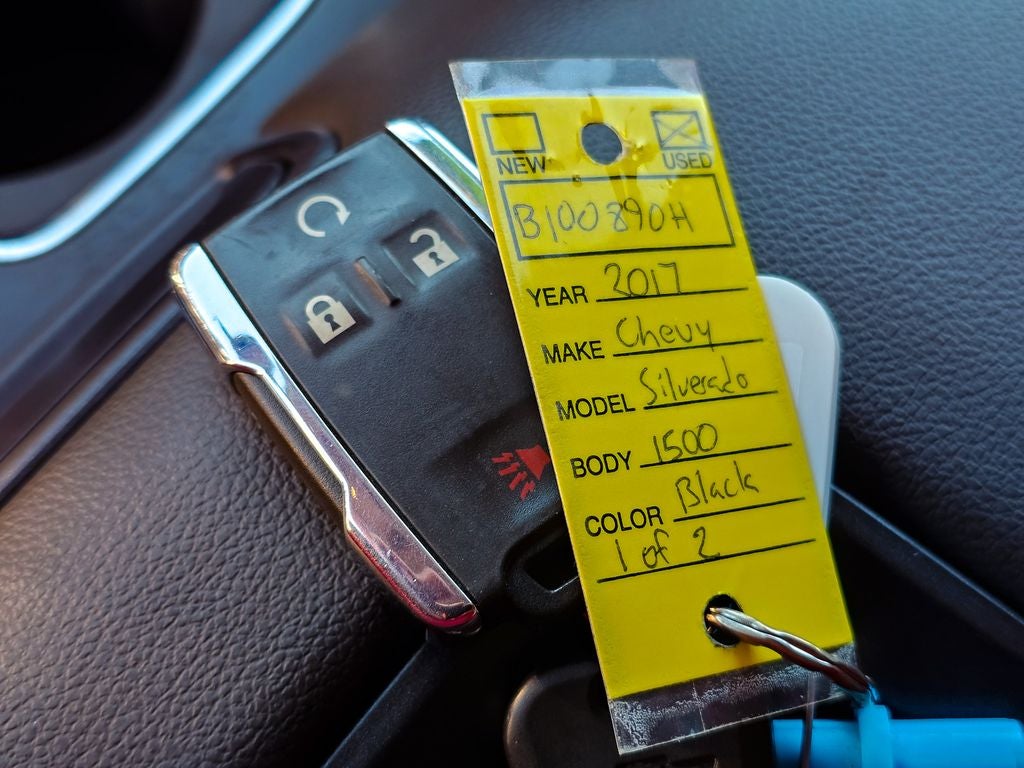 NEW USED
B100890H
YEAR 2017
MAKE Chevy
MODEL Silverado
BODY 1500
COLOR Black
1 of 2